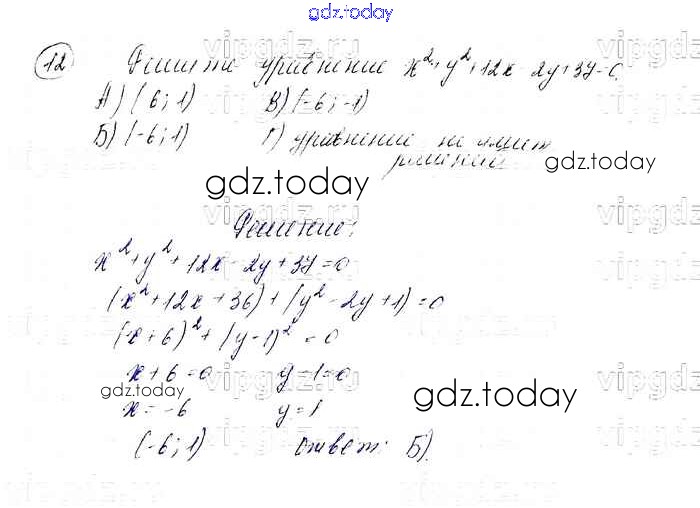 gdz.today
12 Решите уравнение x²+y²+12x-2y+37=0
А) (6; 1) В) (-6; -1)
Б) (-6; 1) Г) уравнение не имеет
решений
gdz.today
gdz.today
Решение:
x²+y²+12x-2y+37=0
(x²+12x+36)+(y²-2y+1)=0
(x+6)²+(y-1)²=0
x+6=0 y-1=0
gdz.today
x=-6 y=1
gdz.today
(-6; 1) Ответ: Б).